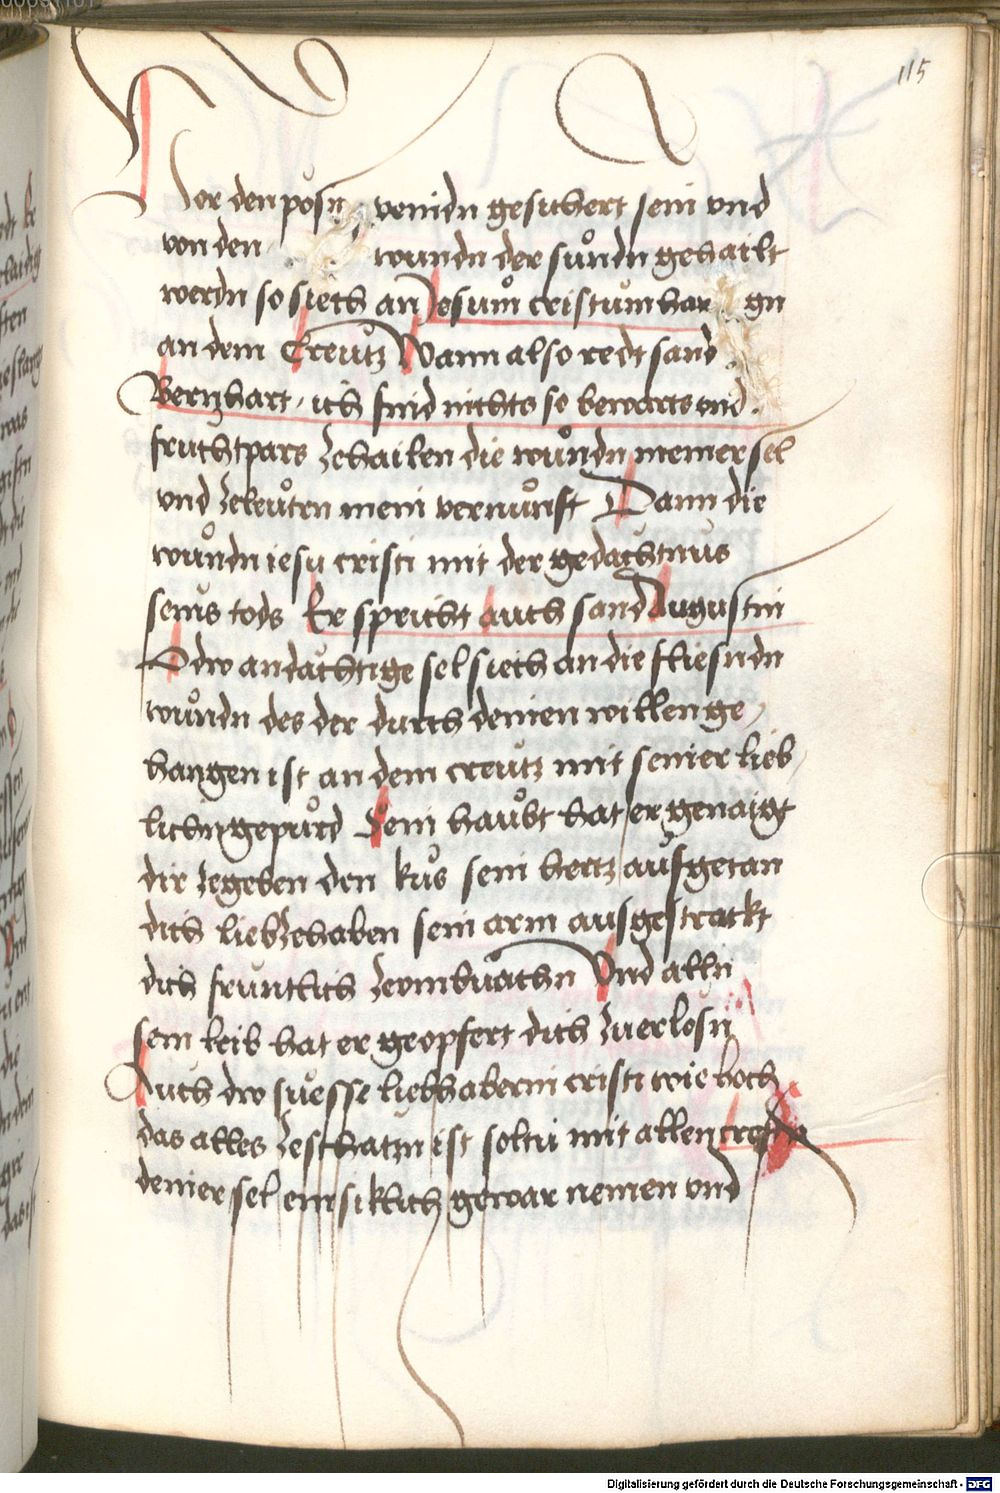 115
Vor den pösn venidn gesichert sein vnd
von den wundn der sůndn gehailt
werdn so siech an Jesum cristum han gn
an dem Creutz Wann also redt sand
Bernhart ich find nichts so bewärts vnd
fruchtpars zehailen die wůndn meiner sel
vnd zeleůtrn mein vernůnft Dann die
wůndn iesu cristi mit der gedächtnus
seins tods Er spricht auch sand Augustin
O dw andächtige sel siech an die fliesndn
wůndn des der durch deinen willen ge
hangen ist an dem creutz mit seiner lieb
lichn gepůrd Sein haůbt hat er genaigt
dir zegeben den kus sein hertz aufgetan
dich liebzehaben sein arm ausgestrackt
dich fruntlich zeumbvachn Vnd alln
sein leib hat er geopfert dich zuerlösn
Auch dw suesse liebhaberin cristi wie hoch
das alles zeschatzn ist soltu mit allen creftn
deiner sel emsiklich gewar nemen vnd
Digitalisierung gefördert durch die Deutsche Forschungsgemeinschaft - DFG